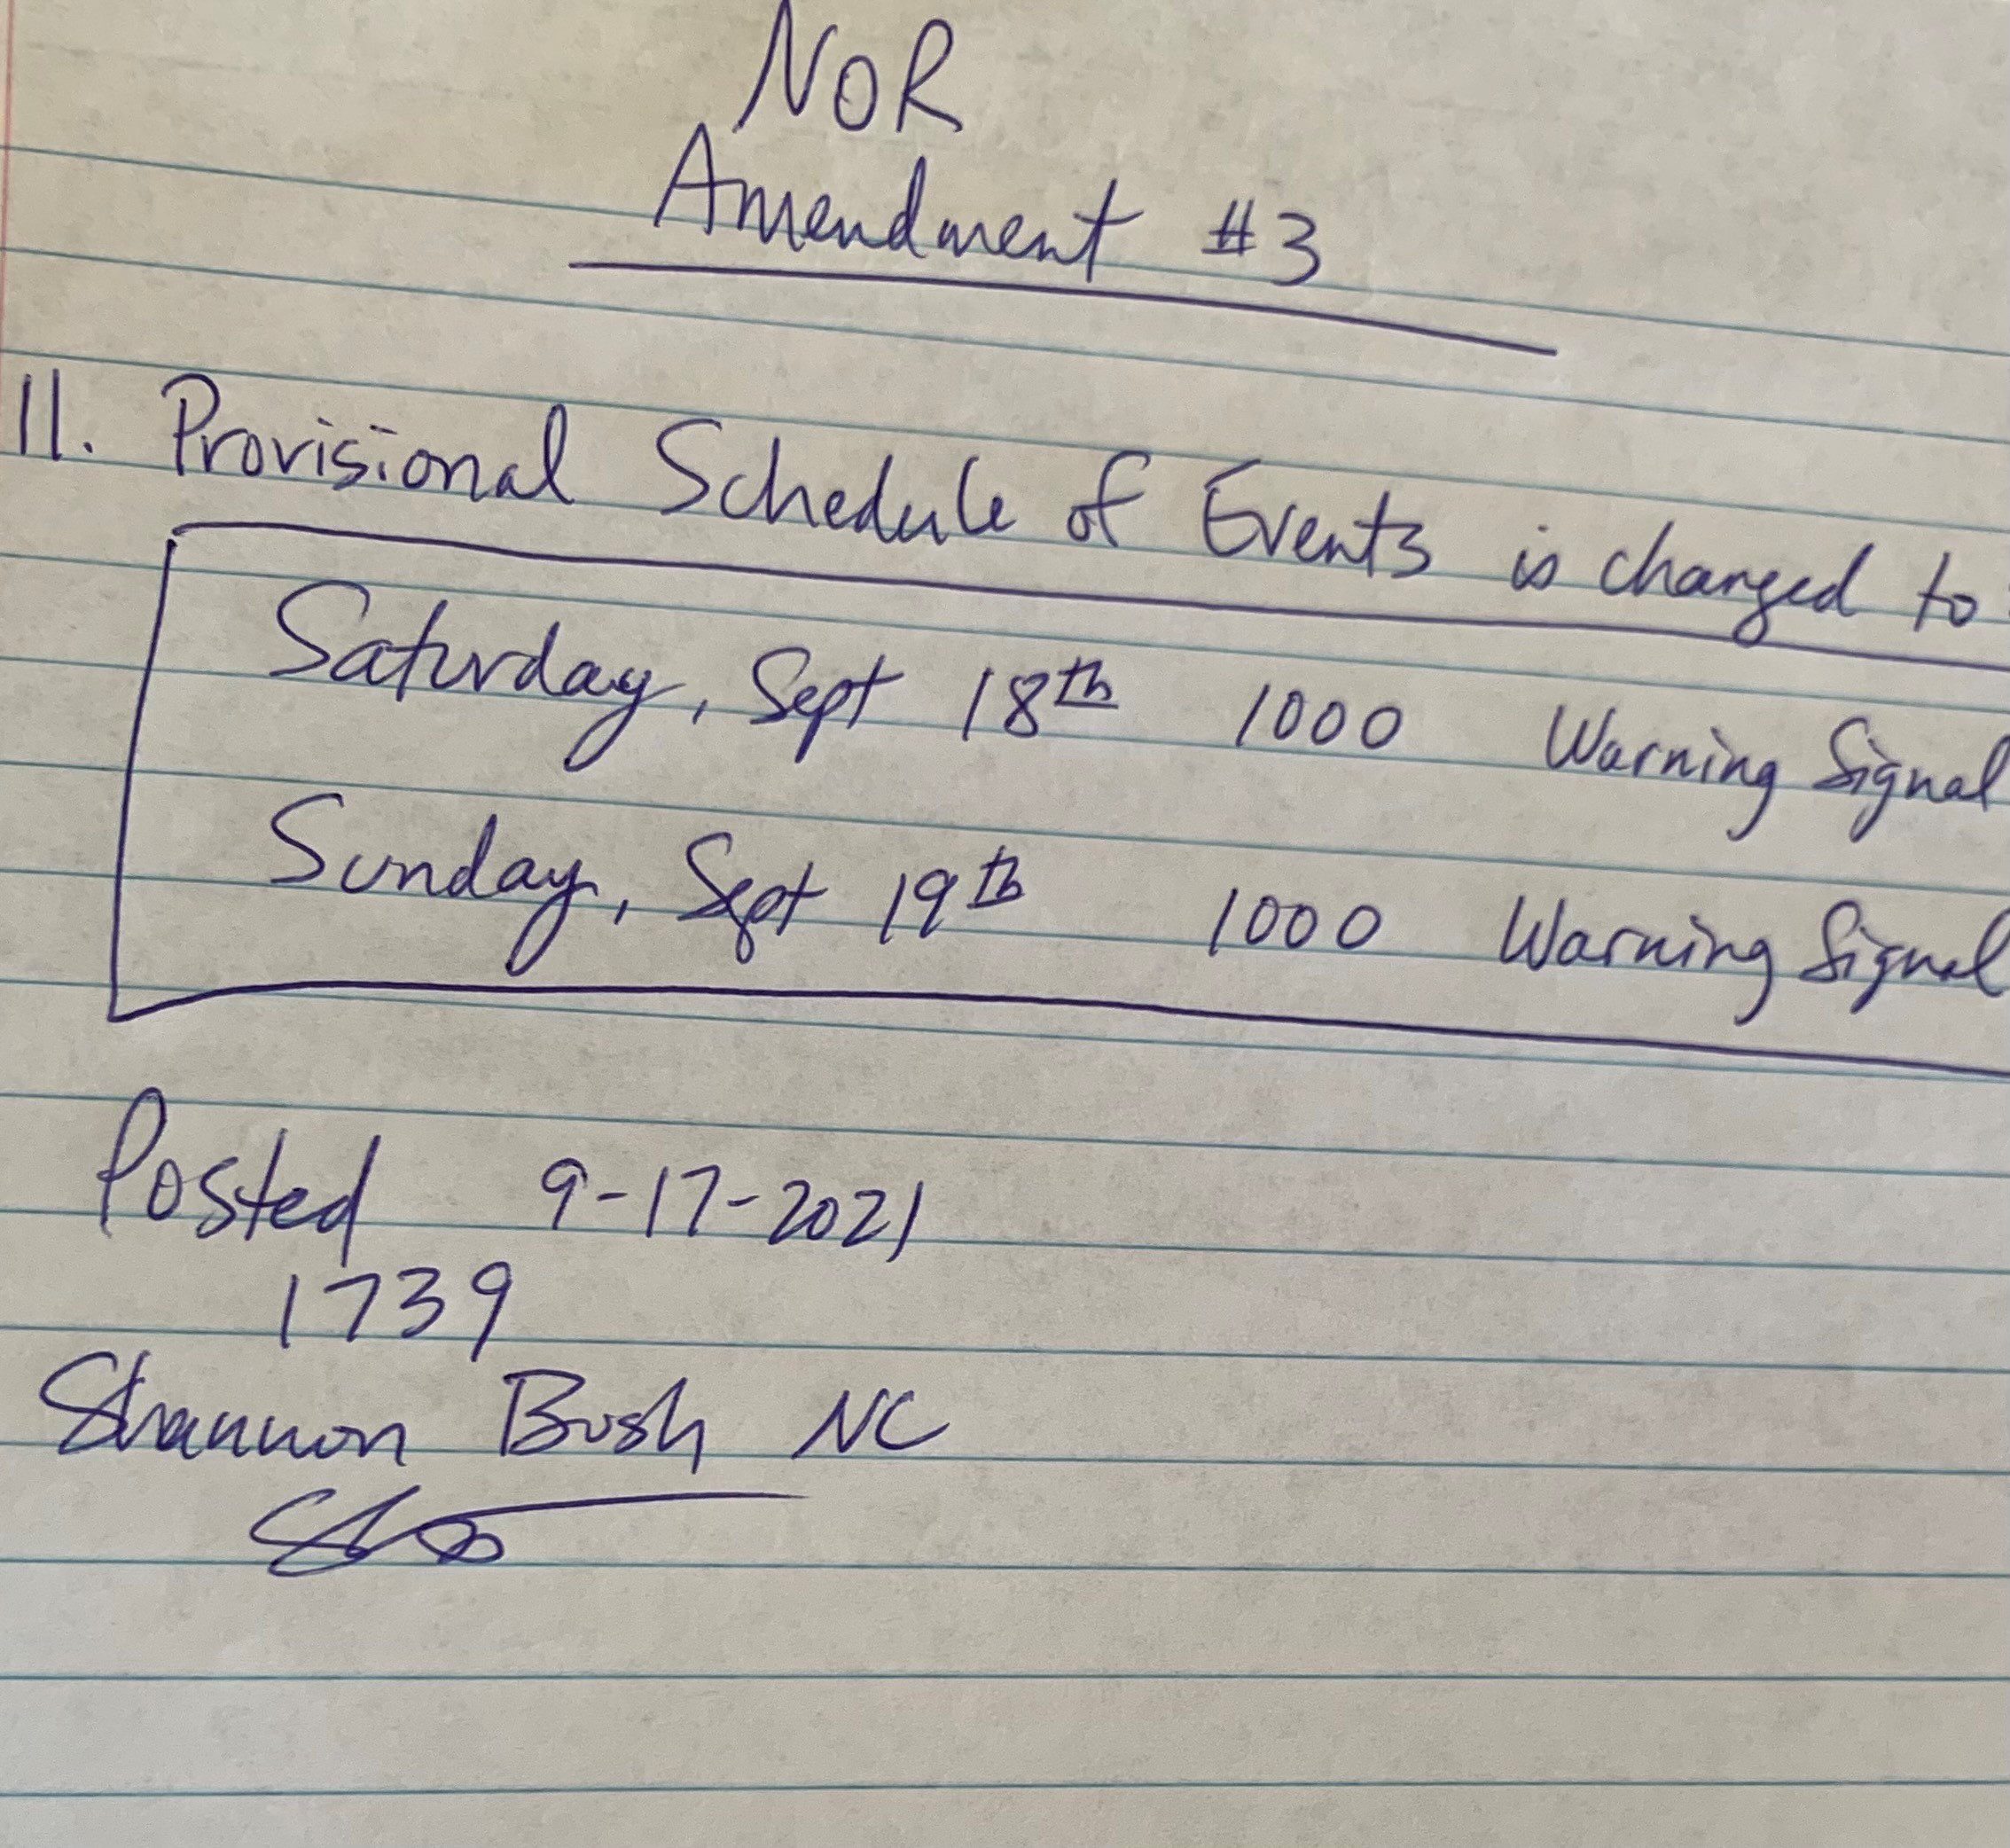 NOR
Amendment #3
11. Provisional Schedule of Events is changed to
Saturday, Sept 18th 1000 Warning Signal
Sunday, Sept 19th 1000 Warning Signal
Posted 9-17-2021
1739
Shannon Bush NC